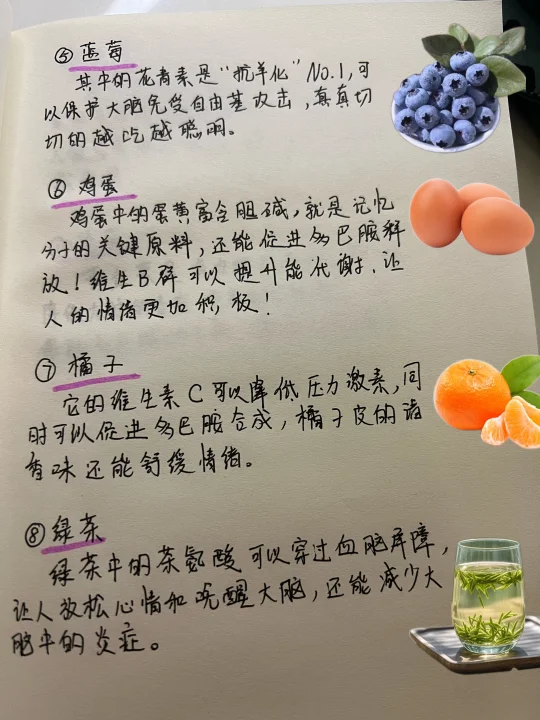 ⑤ 蓝莓
其中的花青素是“抗羊化”No.1,可
以保护大脑免受自由基攻击,真真切
切的越吃越聪明。
⑥ 鸡蛋
鸡蛋中的蛋黄富含胆碱,就是记忆
分子的关键原料,还能促进多巴胺释
放!维生B群可以提升能代谢,让
人的情绪更加积极!
⑦ 橘子
它的维生素C可以降低压力激素,同
时可以促进多巴胺合成,橘子皮的清
香味还能舒缓情绪。
⑧ 绿茶
绿茶中的茶氨酸可以穿过血脑屏障,
让人放松心情和唤醒大脑,还能减少大
脑中的炎症。